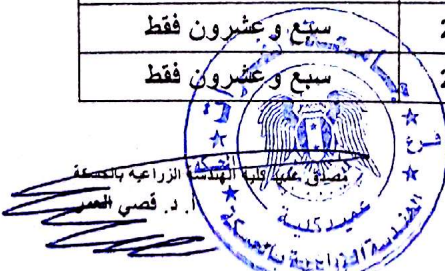 سبع و عشرون فقط
2
سبع و عشرون فقط
2
مصدق عميد كلية الهندسة الزراعية بالحسكة
أ. د. قصي
عميد كلية
الهندسة الزراعية بالحسكة
فرع